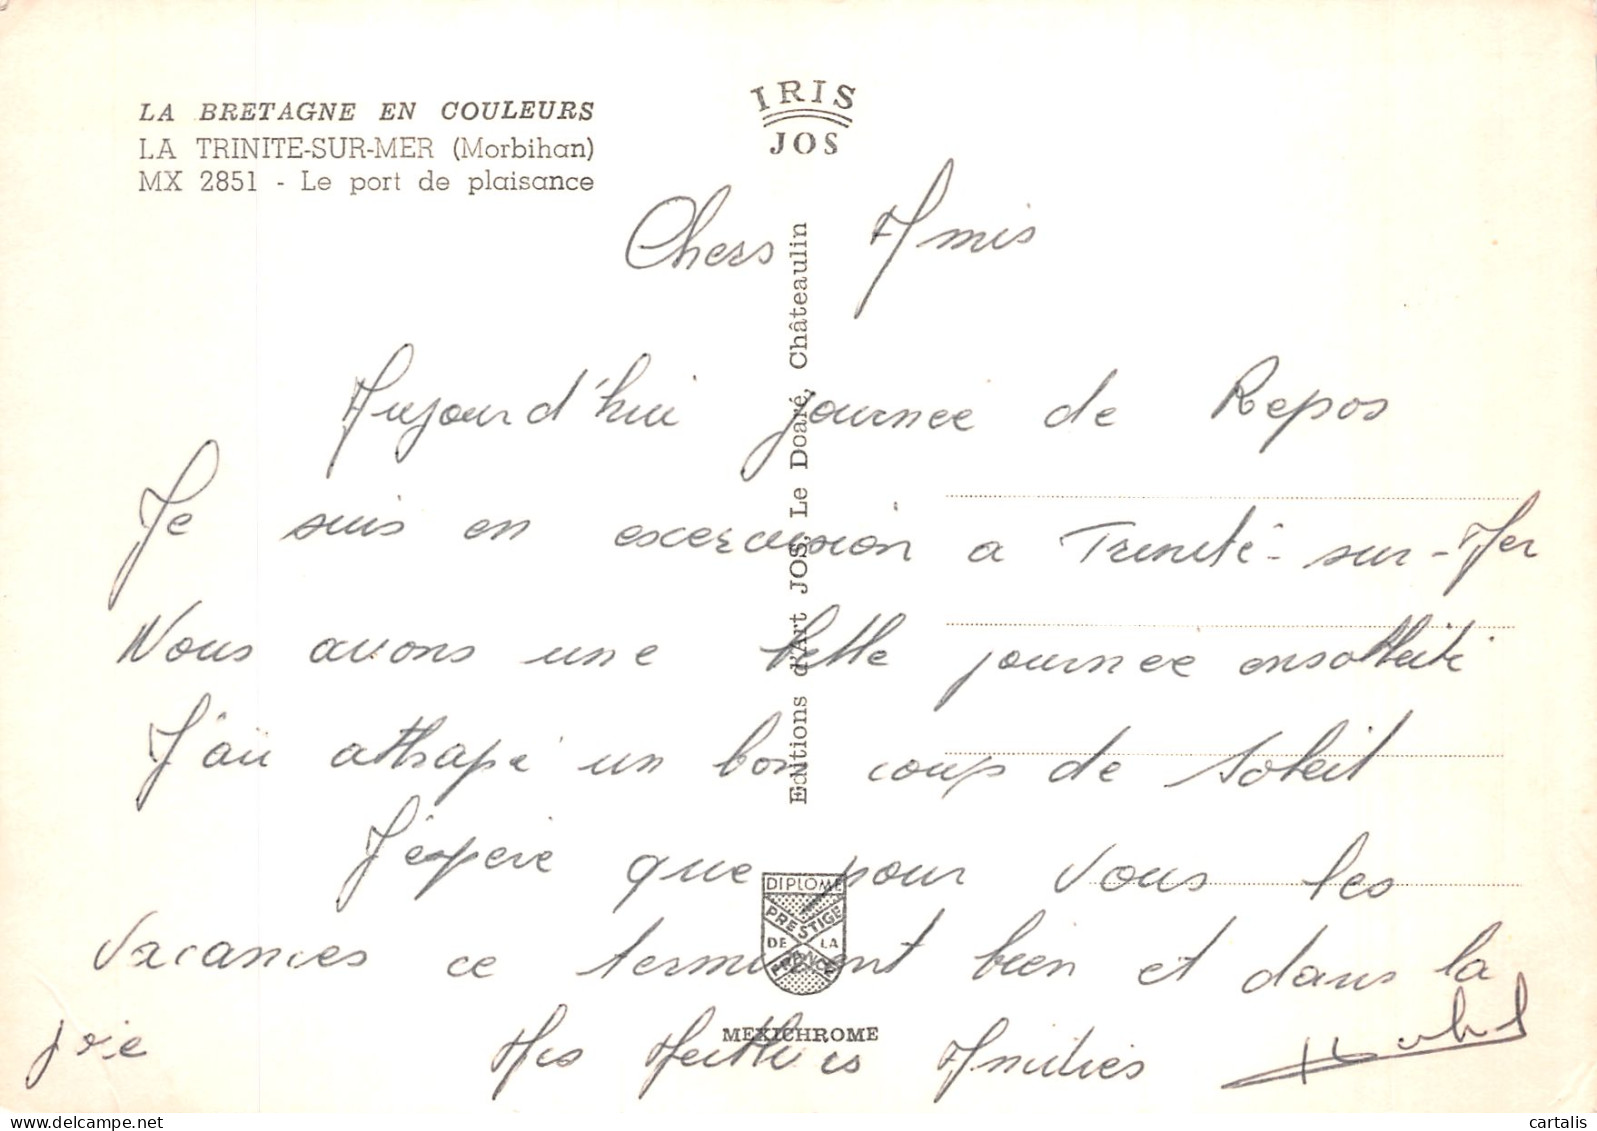 LA BRETAGNE EN COULEURS
LA TRINITE-SUR-MER (Morbihan)
MX 2851 - Le port de plaisance
IRIS
JOS
Editions d'Art JOS, Le Doaré, Châteaulin
Chers Amis
Aujourd'hui journee de Repos
Je suis en excercusion a Trinité-sur-Mer
Nous avons une belle journee ensolleité
J'ai athrapé un bon coup de Soleil
J'éspere que pour Vous les
Vacances ce terminent bien et dans la
joie Mes Meilleurs Amitiés
DIPLOME
PRESTIGE
DE LA
FRANCE
MEXICHROME
cartalis